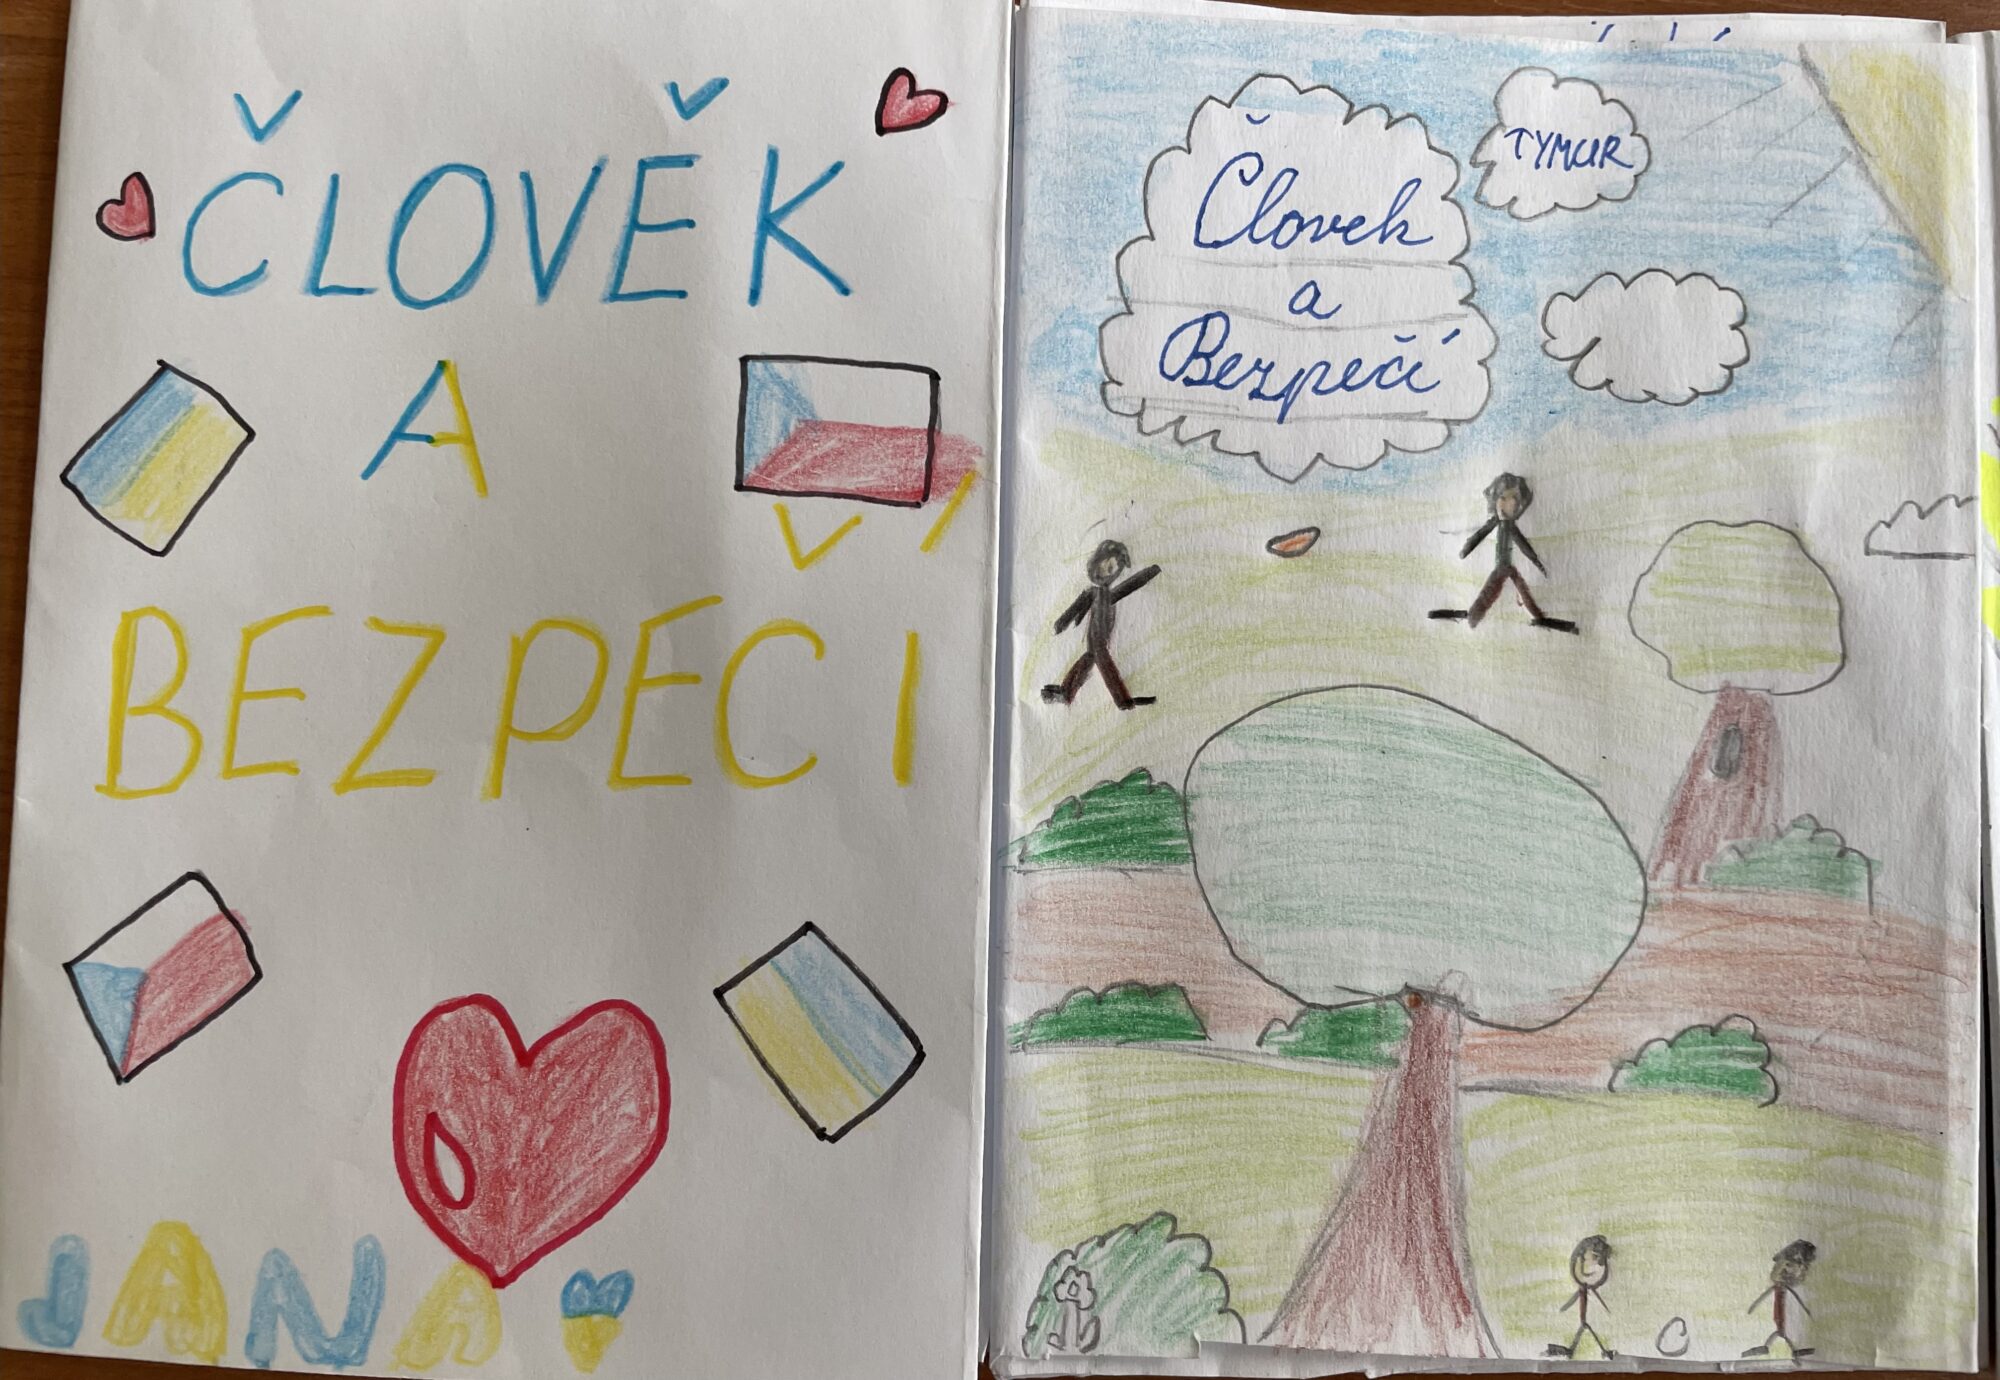 ČLOVĚK
A
BEZPEČÍ
JANA
Človek
a
Bezpečí
TYMUR